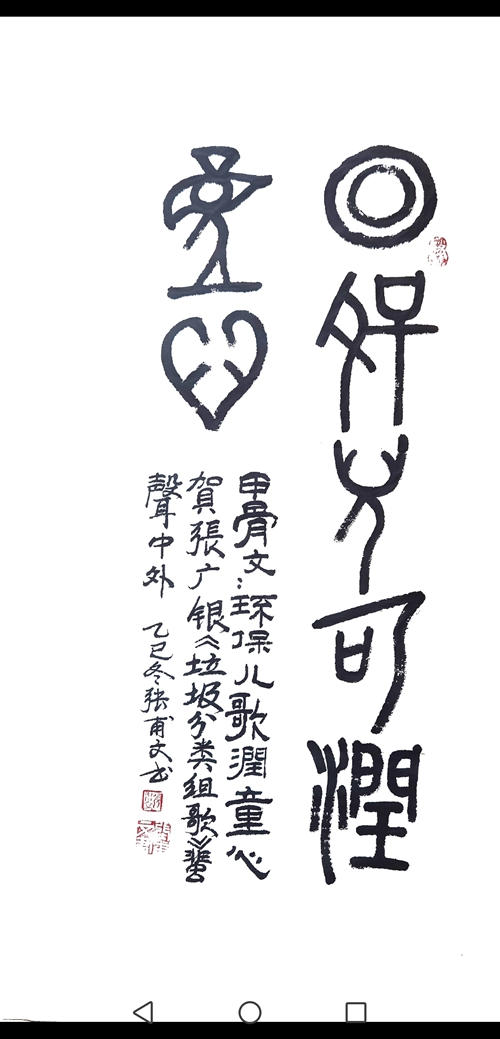 环保儿歌潤
童心
甲骨文:环保儿歌潤童心
賀張广银《垃圾分类组歌》蜚
聲中外 乙巳冬張甫文书